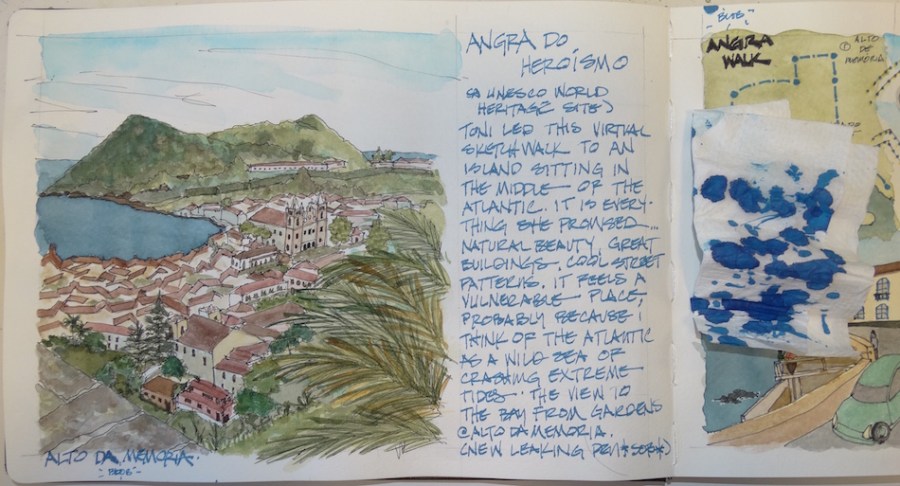 ANGRA DO
HEROÍSMO
(A UNESCO WORLD
HERITAGE SITE)
TONI LED THIS VIRTUAL
SKETCHWALK TO AN
ISLAND SITTING IN
THE MIDDLE OF THE
ATLANTIC. IT IS EVERY-
THING SHE PROMISED...
NATURAL BEAUTY, GREAT
BUILDINGS, COOL STREET
PATTERNS. IT FEELS A
VULNERABLE PLACE,
PROBABLY BECAUSE I
THINK OF THE ATLANTIC
AS A WILD SEA OF
CRASHING EXTREME
TIDES. THE VIEW TO
THE BAY FROM GARDENS
@ALTO DA MEMORIA.
(NEW LEAKING PEN *SOB*)
ALTO DA MEMORIA.
ANGRA
WALK
① ALTO
DE
MEMORIA